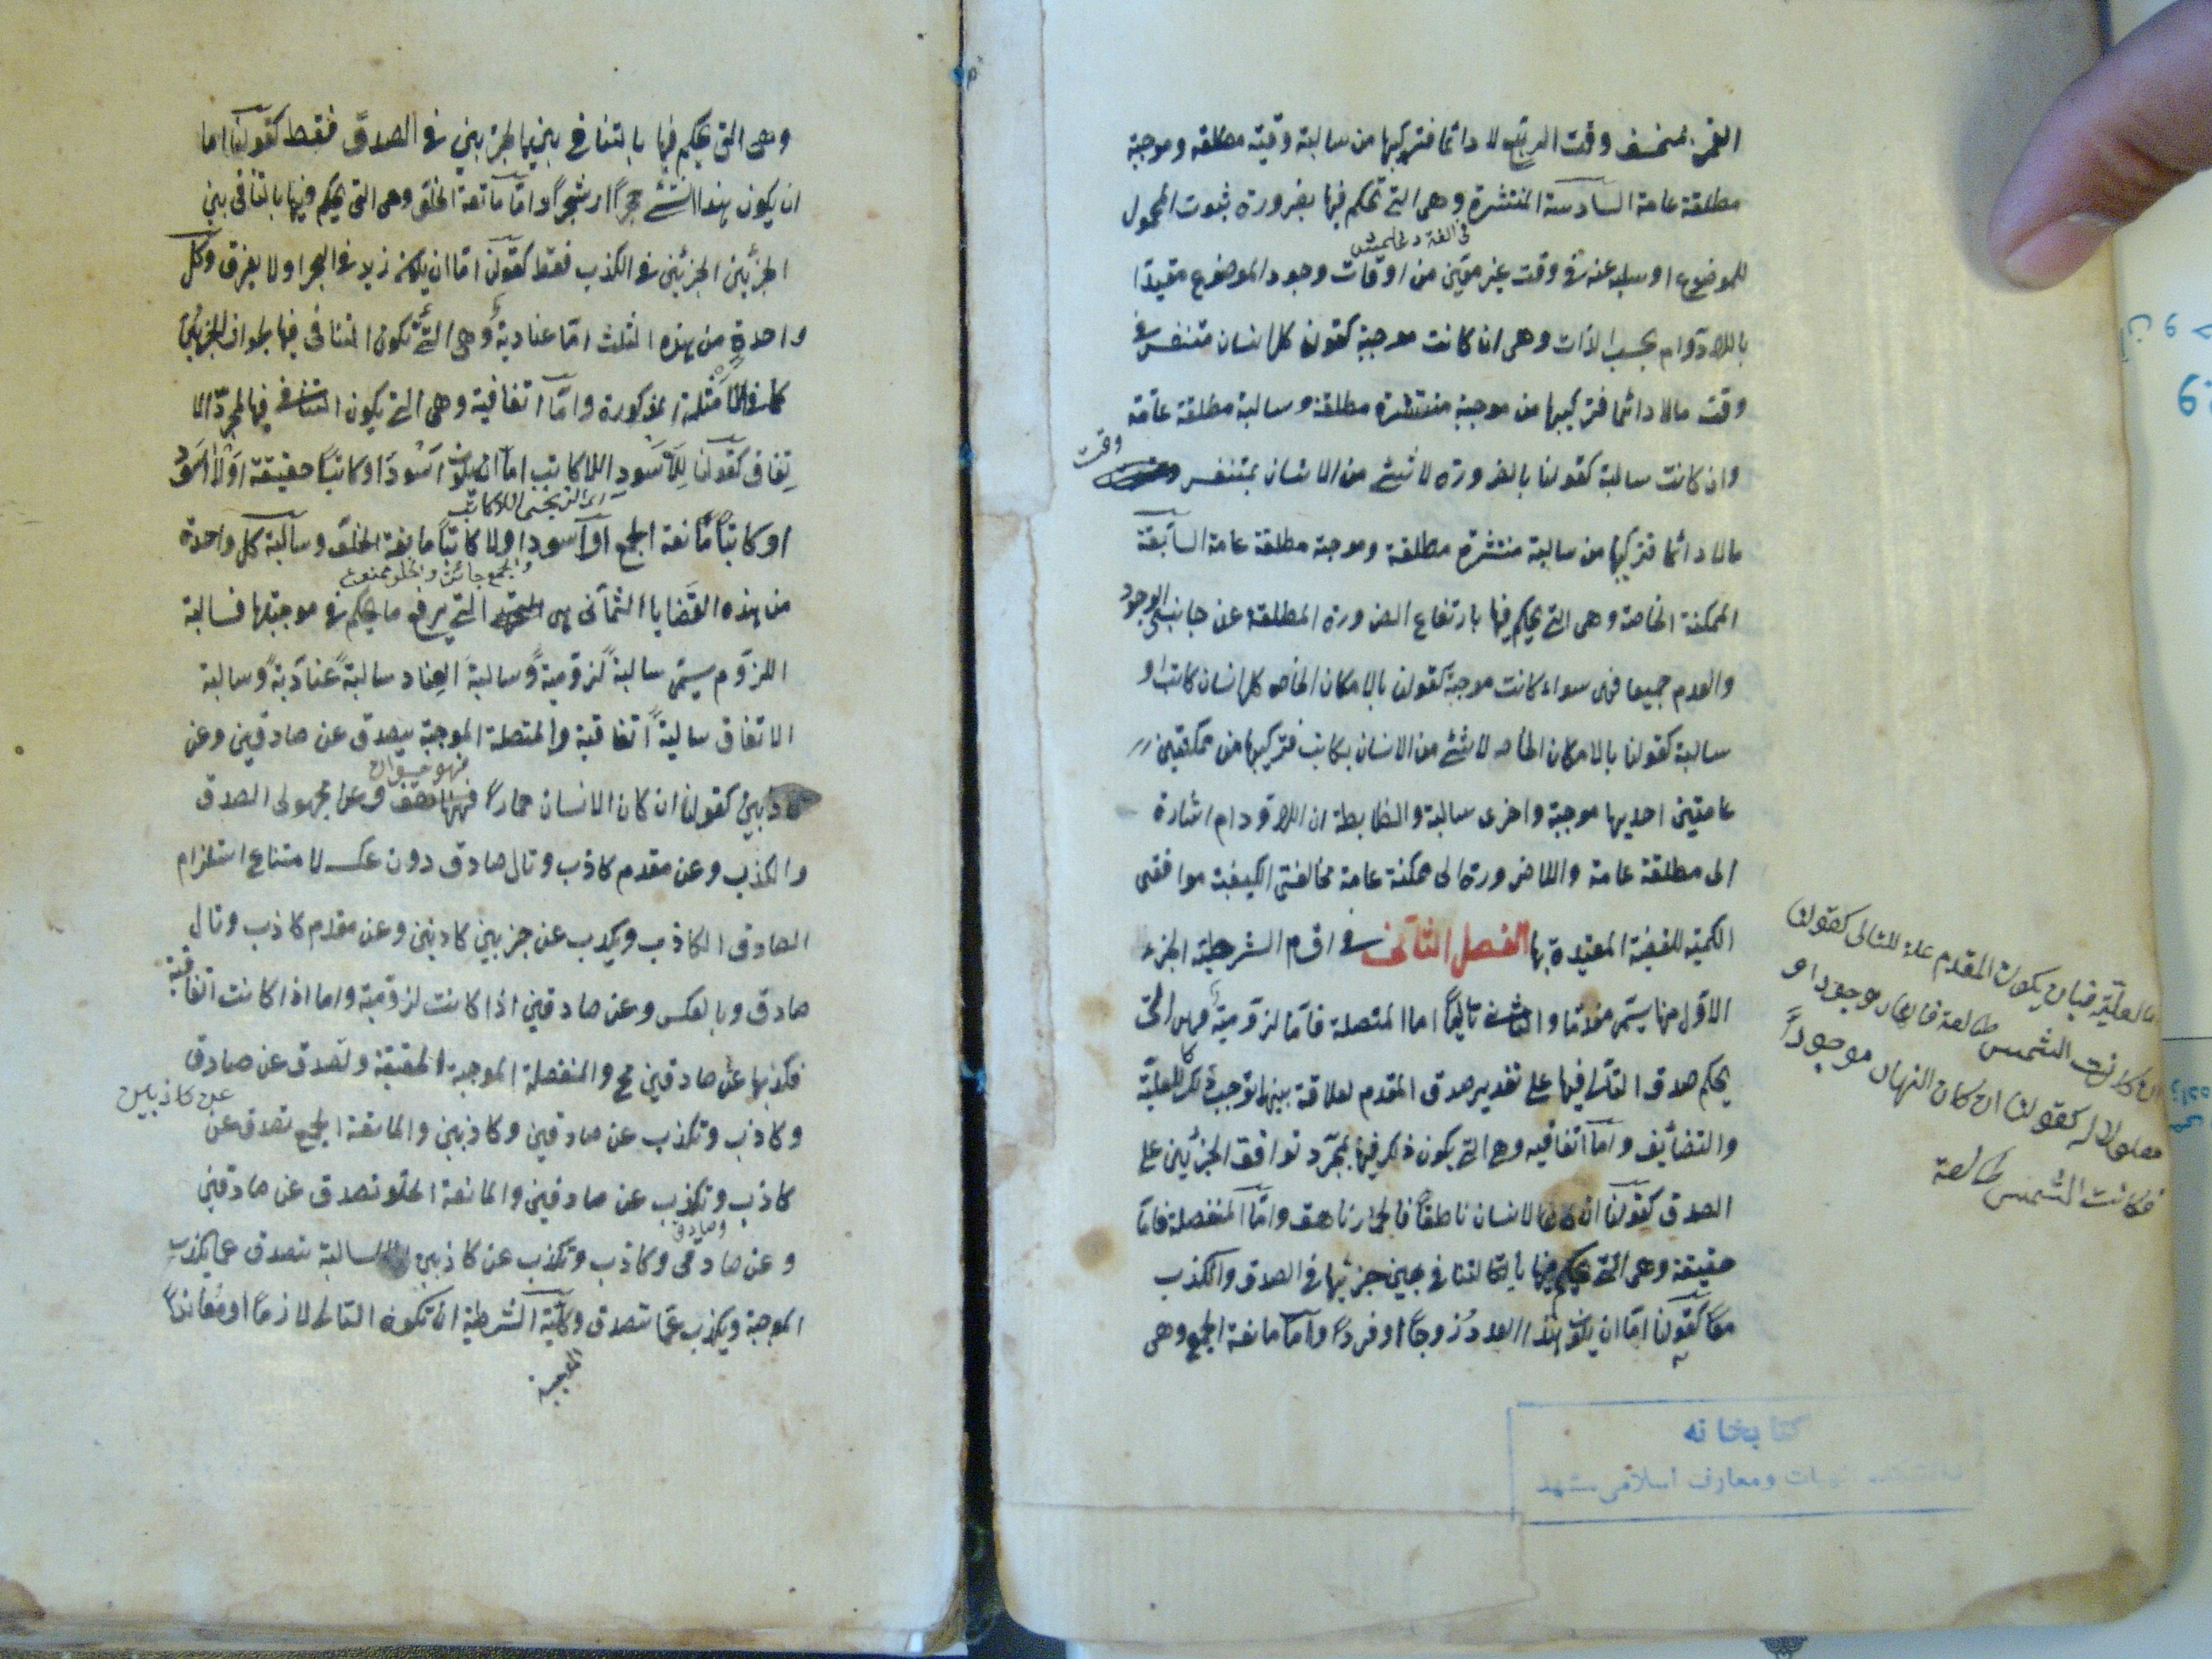 القمر بمنخسف وقت التربيع لا دائما فتركيبها من سالبة وقتية مطلقة وموجبة
مطلقة عامة السادسة المنتشرة وهى التى يحكم فيها بضرورة ثبوت المحمول
للموضوع او سلبه عنه فى وقت غير معين من اوقات وجود الموضوع مقيدا
باللادوام بحسب الذات وهى ان كانت موجبة كقولنا كل انسان متنفس فى
وقت ما لا دائما فتركيبها من موجبة منتشرة مطلقة وسالبة مطلقة عامة
وان كانت سالبة كقولنا بالضرورة لا شئ من الانسان بمتنفس وقت
ما لا دائما فتركيبها من سالبة منتشرة مطلقة وموجبة مطلقة عامة السابعة
الممكنة الخاصة وهى التى يحكم فيها بارتفاع الضرورة المطلقة عن جانبى الوجود
والعدم جميعا فهى سواء كانت موجبة كقولنا بالامكان الخاص كل انسان كاتب او
سالبة كقولنا بالامكان الخاص لا شئ من الانسان بكاتب فتركيبها من ممكنتين
عامتين احديهما موجبة واخرى سالبة والضابطة ان اللادوام اشارة
الى مطلقة عامة واللاضرورة الى ممكنة عامة مخالفتى الكيفية موافقى
الكمية للقضية المقيدة بها الفصل الثانى فى اقسام الشرطية الجزء
الاول منها يسمى مقدما والثانى تاليا اما المتصلة فاما لزومية وهى التى
يحكم صدق التالى فيها على تقدير صدق المقدم لعلاقة بينهما توجب ذلك كالعلية
والتضايف واما اتفاقيه وهى التى يكون ذلك فيها بمجرد توافق الجزئين على
الصدق كقولنا ان كان الانسان ناطقا فالحمار ناهق واما المنفصلة فاما
حقيقة وهى التى يحكم فيها بالتنافى بين جزئيها فى الصدق والكذب
معا كقولنا اما ان يكون هذا العدد زوجا او فردا واما مانعة الجمع وهى
اما العلية فبان يكون المقدم علة للتالى كقولنا
ان كانت الشمس طالعة فالنهار موجود او
معلولا له كقولنا ان كان النهار موجودا
فكانت الشمس طالعة
كتابخانه
ومعارف اسلامى مشهد
وهى التى يحكم فيها بالتنافى بين الجزئين فى الصدق فقط كقولنا اما
ان يكون هذا الشئ حجرا او شجرا واما مانعة الخلو وهى التى يحكم فيها بالتنافى بين
الجزئين الجزئين فى الكذب فقط كقولنا اما ان يكون زيد فى البحر او لا يغرق وكل
واحدة من هذه الثلث اما عنادية وهى التى تكون التنافى فيها لذات الجزئين
كما فى الامثلة المذكورة واما اتفاقية وهى التى يكون التنافى فيها لمجرد الا
تفاق كقولنا للاسود اللاكاتب اما ان يكون اسود او كاتبا حقيقة او لا اسود
او كاتبا مانعة الجمع او اسود او لا كاتبا مانعة الخلو وسالبة كل واحدة
والجمع جائز والخلو ممنوع
من هذه القضايا الثمانى هى التى يرفع ما يحكم فى موجبتها فسالبة
اللزوم يسمى سالبة لزومية وسالبة العناد سالبة عنادية وسالبة
الاتفاق سالبة اتفاقية والمتصلة الموجبة يصدق عن صادقين وعن
فهو حيوان
كاذبين كقولنا ان كان الانسان حمارا وعن مجهولى الصدق
والكذب وعن مقدم كاذب وتال صادق دون عكسه لامتناع استلزام
الصادق الكاذب ويكذب عن جزئين كاذبين وعن مقدم كاذب وتال
صادق وبالعكس وعن صادقين اذا كانت لزومية واما اذا كانت اتفاقية
فكذبها عن صادقين مح والمنفصلة الموجبة الحقيقة وتصدق عن صادق
عن كاذبين
وكاذب وتكذب عن صادقين وكاذبين والمانعة الجمع تصدق عن
كاذب وتكذب عن صادقين والمانعة الخلو تصدق عن صادقين
وصادق
وعن صادق وكاذب وتكذب عن كاذبين السالبة تصدق عما يكذب
الموجبة ويكذب عما تصدق وكلية الشرطية ان تكون التالى لازما او معاندا